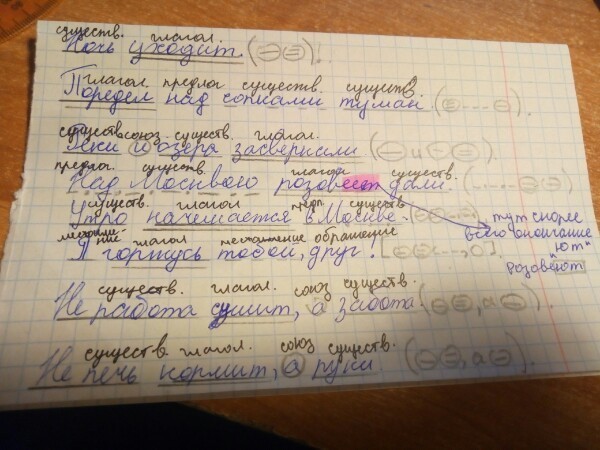 существ. глагол.
Ночь уходит.
глагол. предлог существ. существ.
Поредел над сопками туман.
существ. союз существ. глагол.
Реки и озёра засверкали
предлог существ. глагол существ.
Над Москвою розовеют дали.
существ. глагол предл. существ.
Утро начинается в Москве.
тут скорее
всего окончание
"ют"
розовеют
местоимение глагол местоимение обращение
Я горжусь тобой, друг!
существ. глагол. союз существ.
Не работа сушит, а забота
существ. глагол. союз существ.
Не печь кормит, а руки